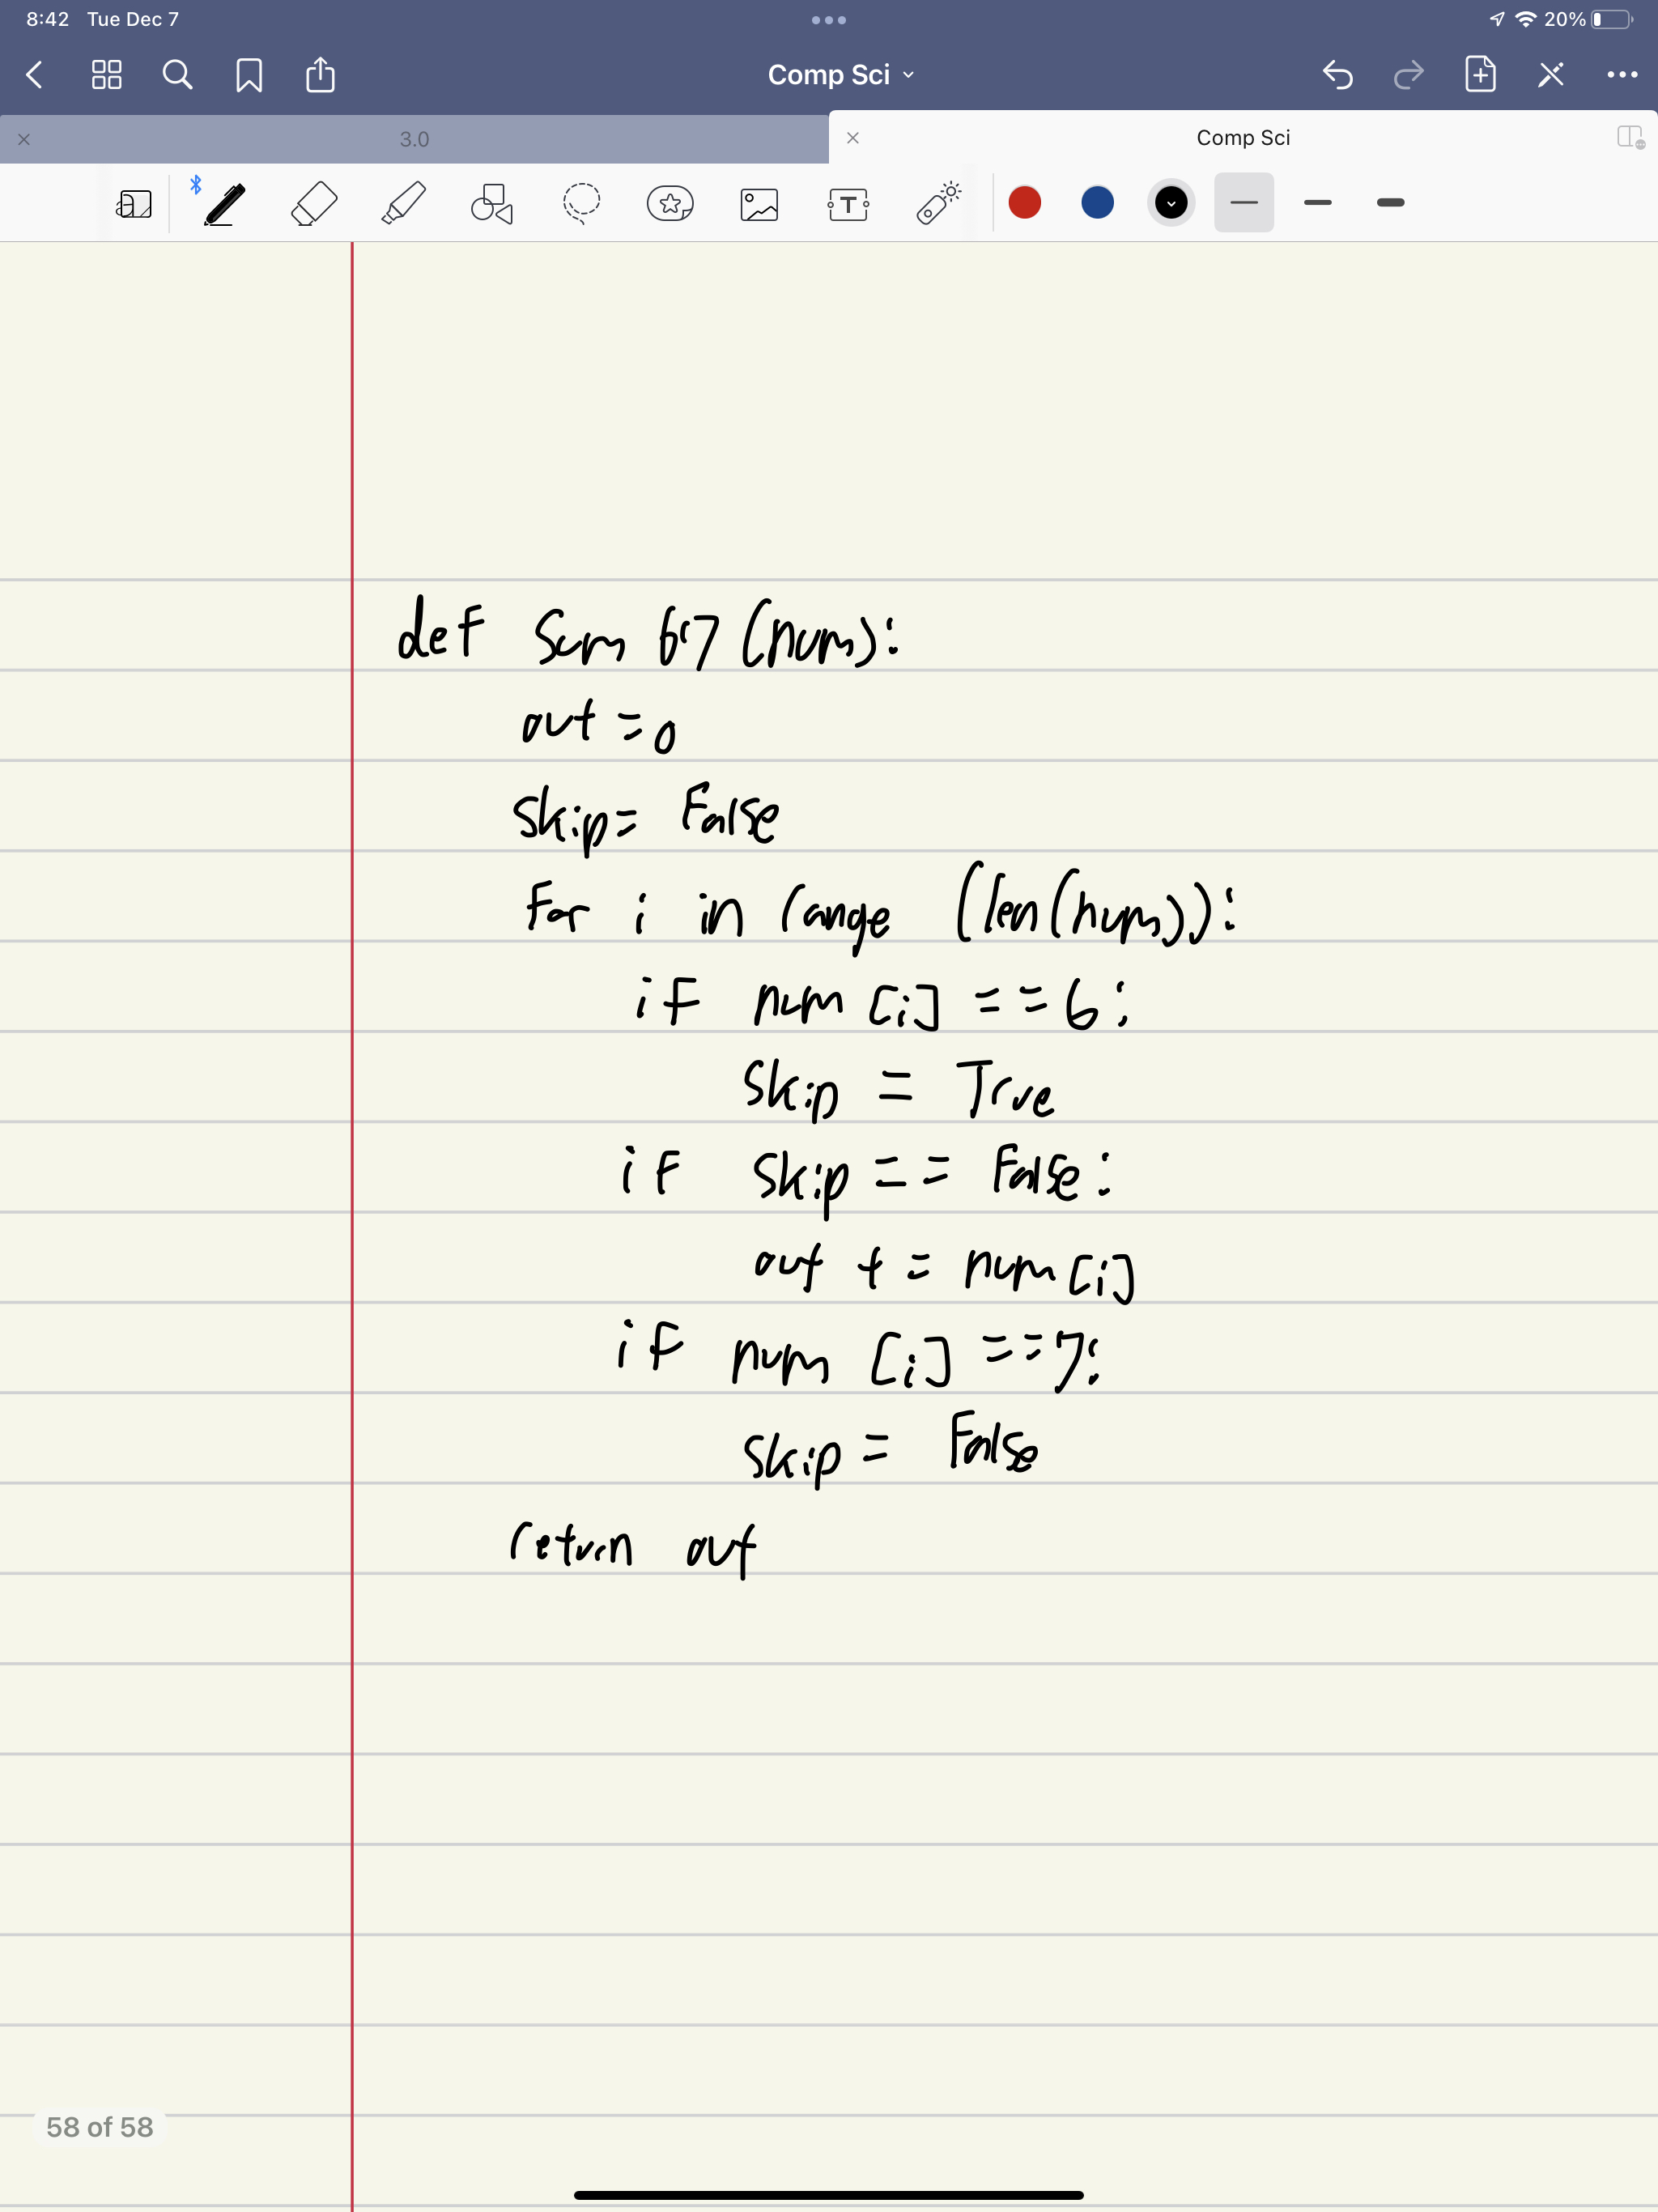 8:42 Tue Dec 7 20%
Comp Sci
3.0 Comp Sci
def Sum 67 (num):
out = 0
skip = False
For i in range (len(num)):
if num [i] == 6:
skip = True
if skip == False:
out += num[i]
if num [i] == 7:
skip = False
return out
58 of 58